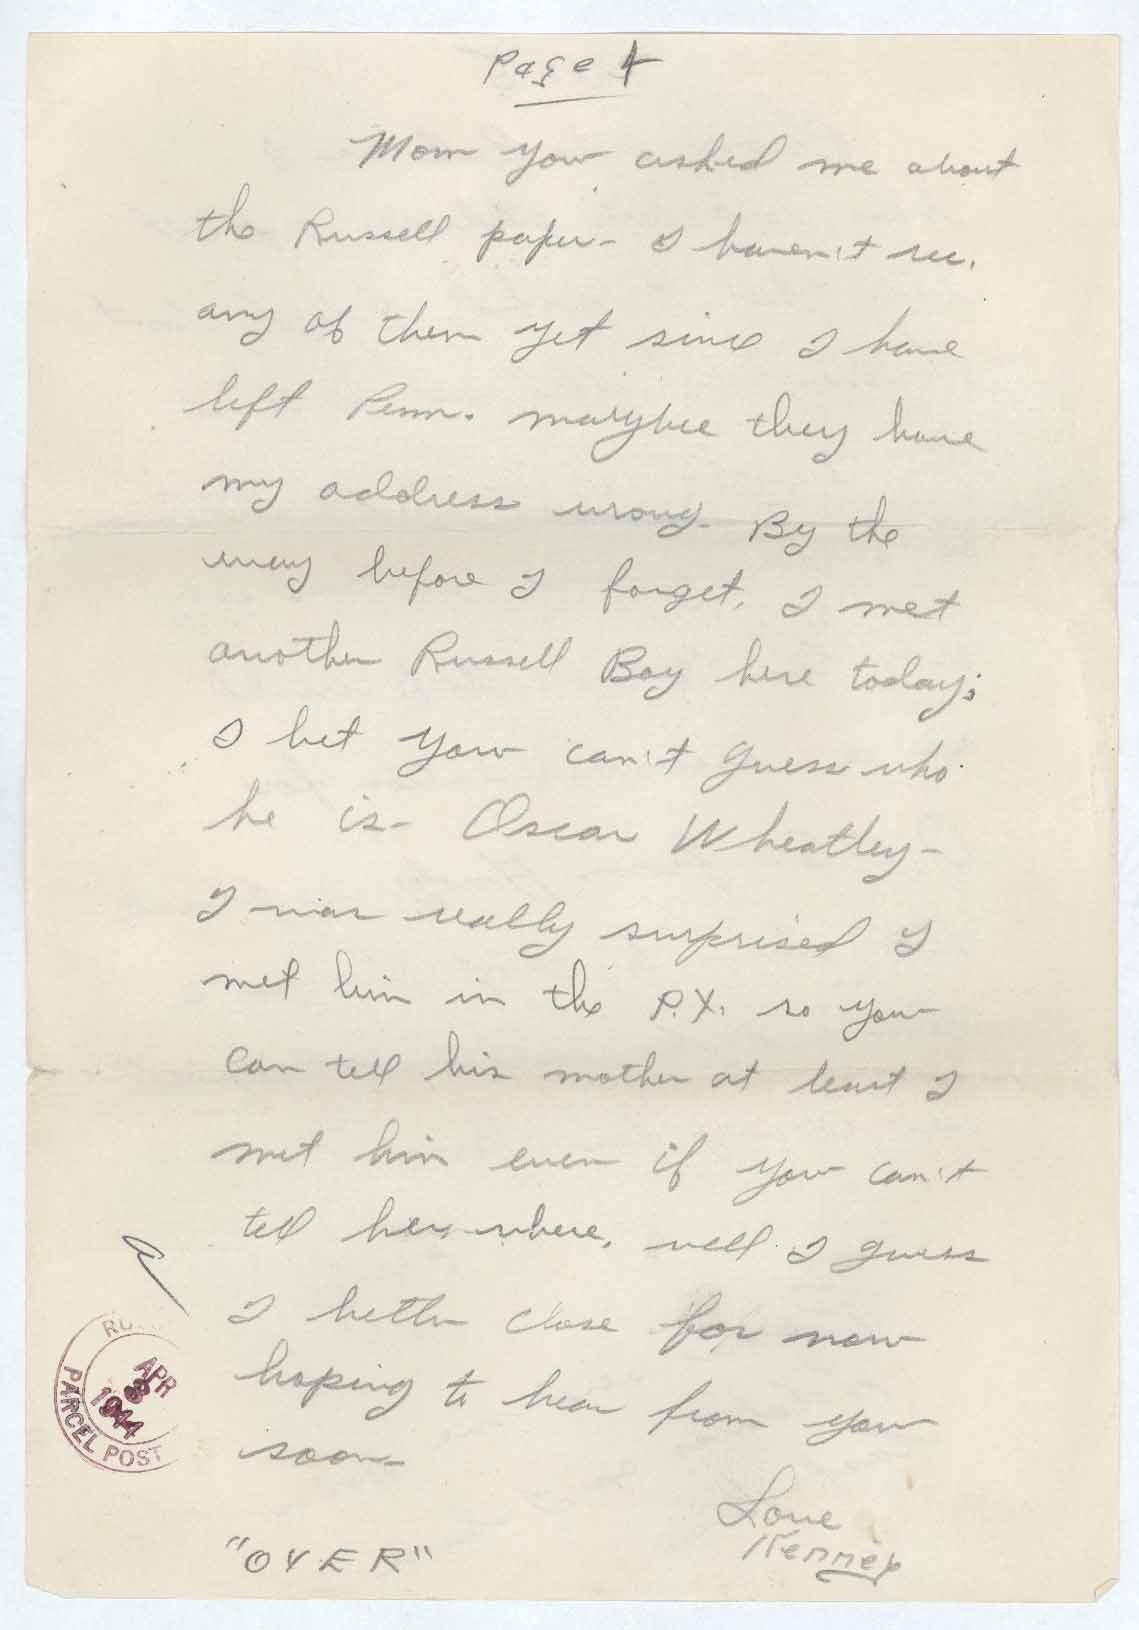 Page 4
Mom you asked me about
the Russell paper- I haven't rec.
any of them yet since I have
left Penn. marybee they have
my address wrong- By the
way before I forget, I met
another Russell Boy here today;
I bet you can't guess who
he is- Oscar Wheatley-
I was really surprised I
met him in the P.X. so you
can tell his mother at least I
met him even if you can't
tell her where. well I guess
I bether close for now
hoping to hear from you
soon-
Love
Kenney
"OVER"
RU
APR
1944
PARCEL POST